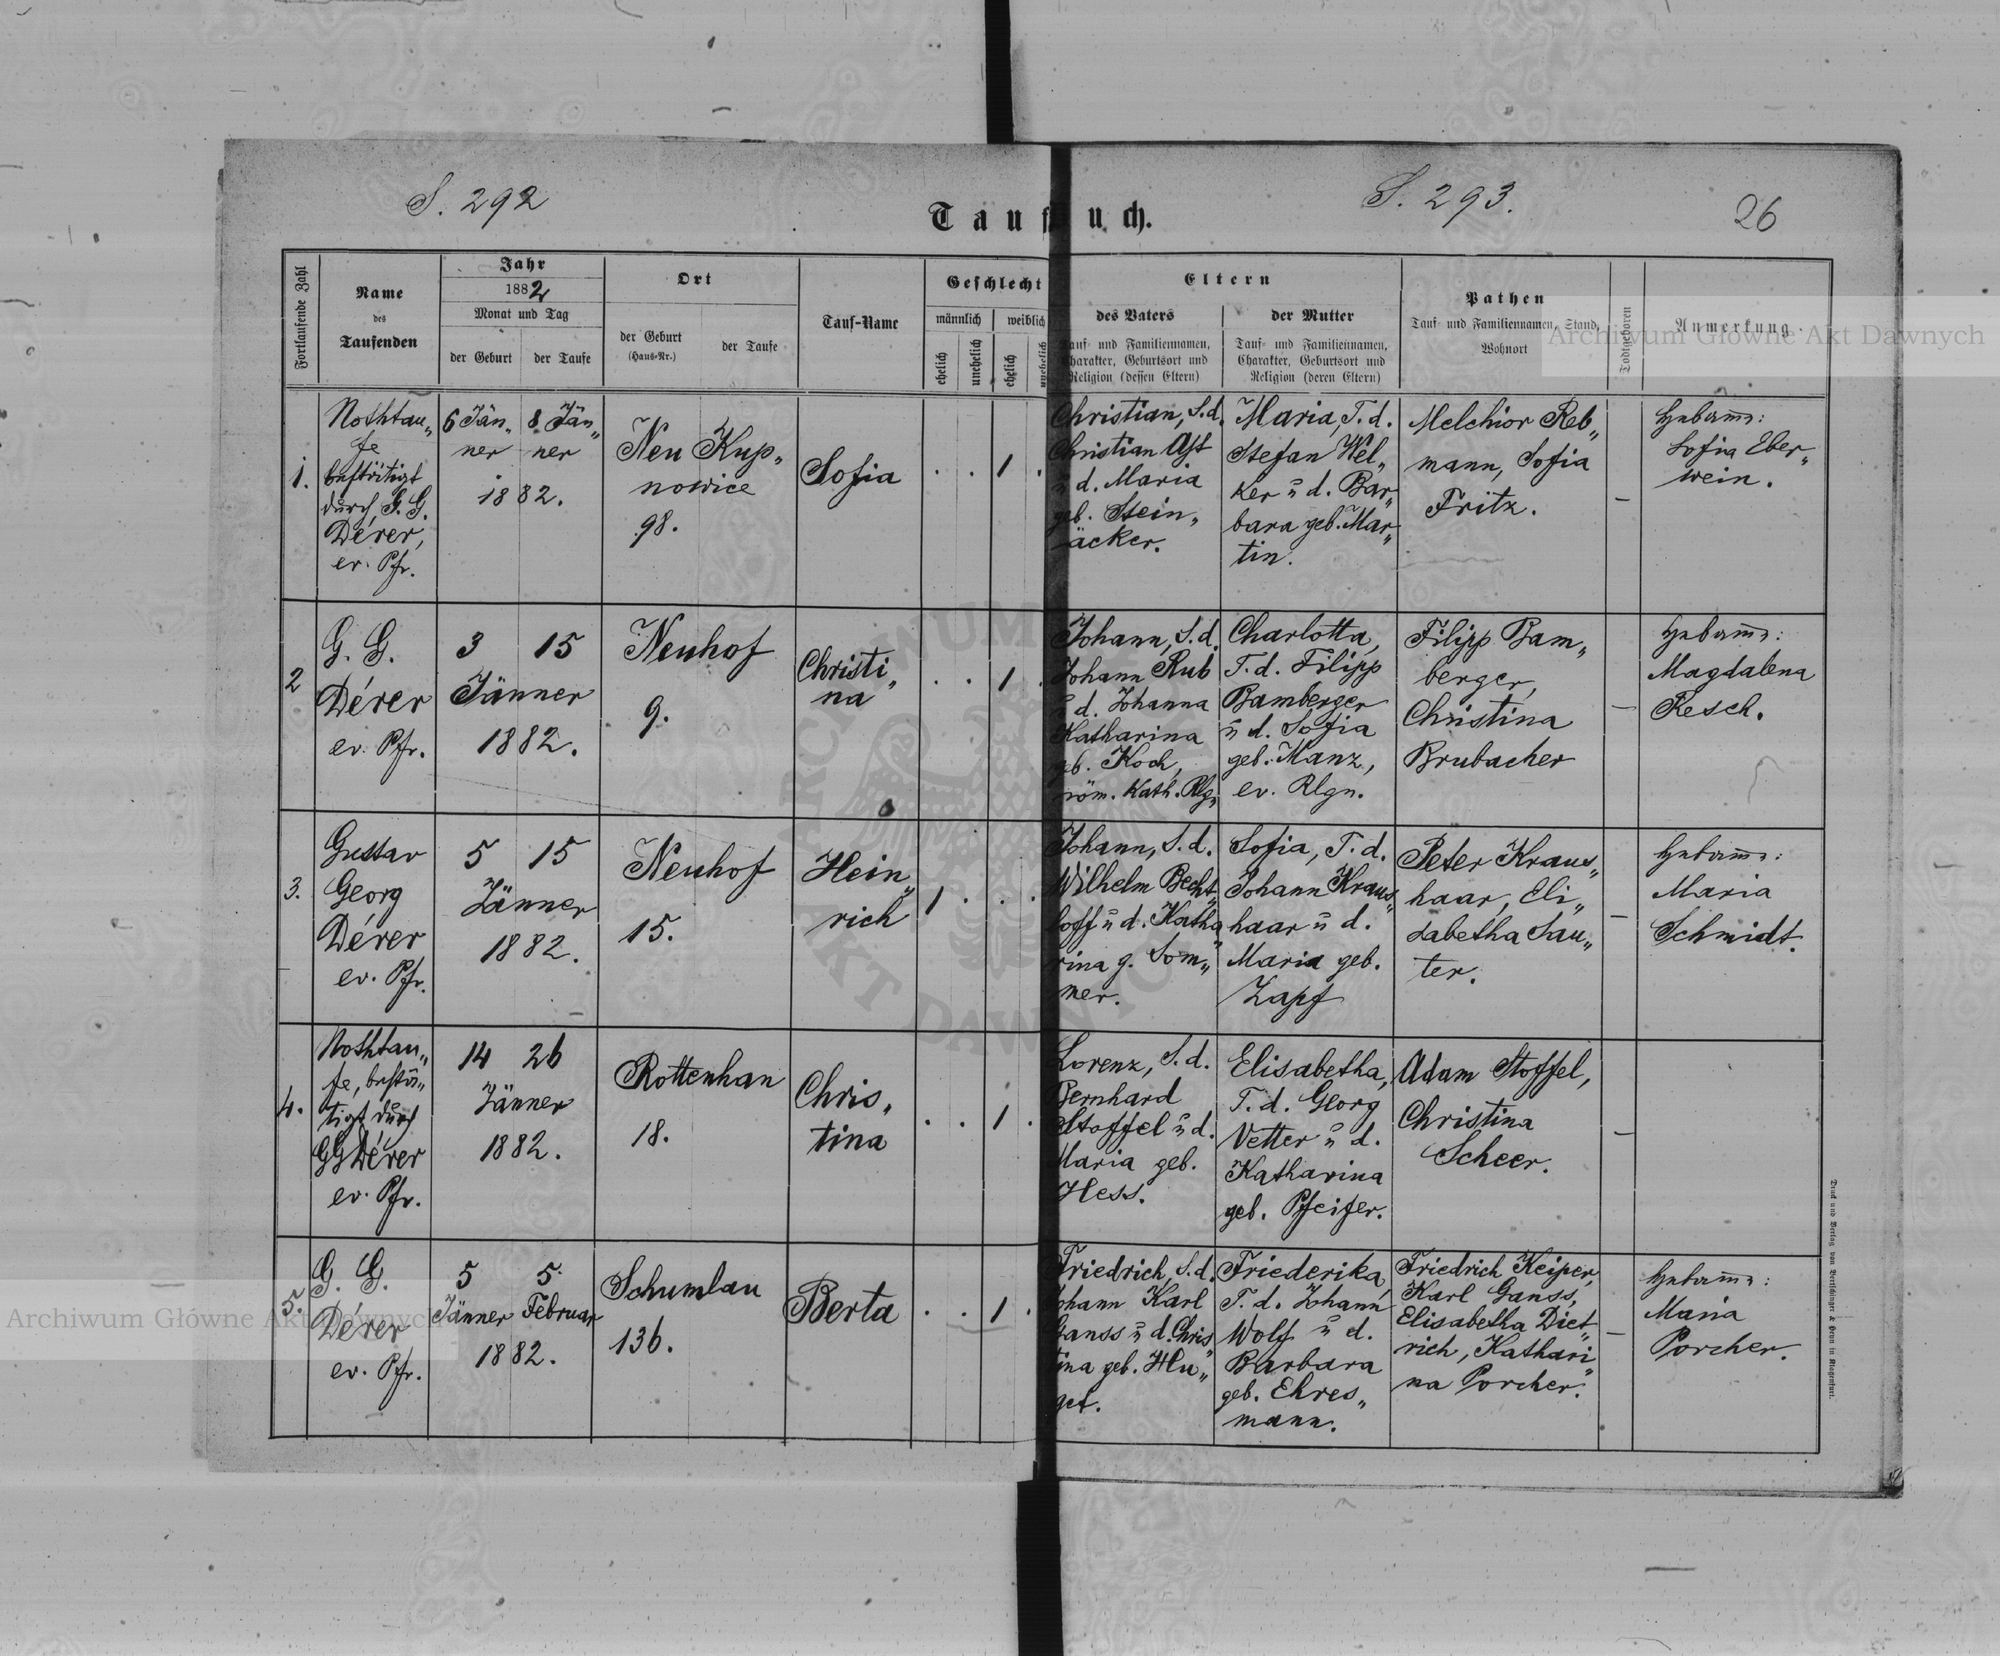 S. 292
S. 293.
26
Taufbuch.
Fortlaufende Zahl
Name
des
Taufenden
Jahr
1882
Monat und Tag
der Geburt
der Taufe
Ort
der Geburt
(Haus-Nr.)
der Taufe
Tauf-Name
Geschlecht
männlich
weiblich
ehelich
unehelich
ehelich
unehelich
Eltern
des Vaters
Tauf- und Familiennamen,
Charakter, Geburtsort und
Religion (dessen Eltern)
der Mutter
Tauf- und Familiennamen,
Charakter, Geburtsort und
Religion (deren Eltern)
Pathen
Tauf- und Familiennamen, Stand,
Wohnort
Todtgeboren
Anmerkung.
1.
Nothtau„
fe
bestätigt
durch G. G.
Dérer,
ev. Pfr.
6 Jän„
ner
8 Jän„
ner
1882.
Neu Kup„
nowice
98.
Sofia
. . 1 .
Christian, S.d.
Christian Ast
ū d. Maria
geb. Stein„
äcker.
Maria, T. d.
Stefan Wel„
ker ū d. Bar„
bara geb. Mar„
tin.
Melchior Reb„
mann, Sofia
Fritz.
–
Hebamme:
Sofia Eber„
wein.
2
G. G.
Dérer
ev. Pfr.
3 15
Jänner
1882.
Neuhof
9.
Christi„
na
. . 1 .
Johann, S.d.
Johann Rub
ū d. Johanna
Katharina
geb. Koch,
röm. Kath. Rlg.
Charlotta,
T. d. Filipp
Bamberger
ū d. Sofia
geb. Manz,
ev. Rlgn.
Filipp Bam„
berger,
Christina
Brubacher
–
Hebamme:
Magdalena
Resch.
3.
Gustav
Georg
Dérer
ev. Pfr.
5 15
Jänner
1882.
Neuhof
15.
Hein„
rich
1 . . .
Johann, S. d.
Wilhelm Becht„
loff ū d. Katha„
rina g. Som„
mer.
Sofia, T. d.
Johann Kraus„
haar ū d.
Maria geb.
Zapf
Peter Kraus„
haar, Eli„
sabetha Sau„
ter.
–
Hebamme:
Maria
Schmidt.
4.
Nothtau„
fe, bestä„
tigt durch
GG Dérer
ev. Pfr.
14 26
Jänner
1882.
Rottenhan
18.
Chris„
tina
. . 1 .
Lorenz, S. d.
Bernhard
Stoffel ū d.
Maria geb.
Hess.
Elisabetha,
T. d. Georg
Vetter ū d.
Katharina
geb. Pfeifer.
Adam Stoffel,
Christina
Scheer.
–
5.
G. G.
Dérer
ev. Pfr.
5 5
Jänner Februar
1882.
Schumlau
136.
Berta
. . 1 .
Friedrich, S.d.
Johann Karl
Ganss ū d. Chris„
tina geb. Hu„
get.
Friederika,
T. d. Johann
Wolf ū d.
Barbara
geb. Ehres„
mann.
Friedrich Keiper,
Karl Ganss,
Elisabetha Diet„
rich, Kathari„
na Porcher.
–
Hebamme:
Maria
Porcher.
Druck und Verlag von Bertschinger & Heyn in Klagenfurt.
Archiwum Główne Akt Dawnych
Archiwum Główne Akt Dawnych
ARCHIWUM
AKT DAWNYCH